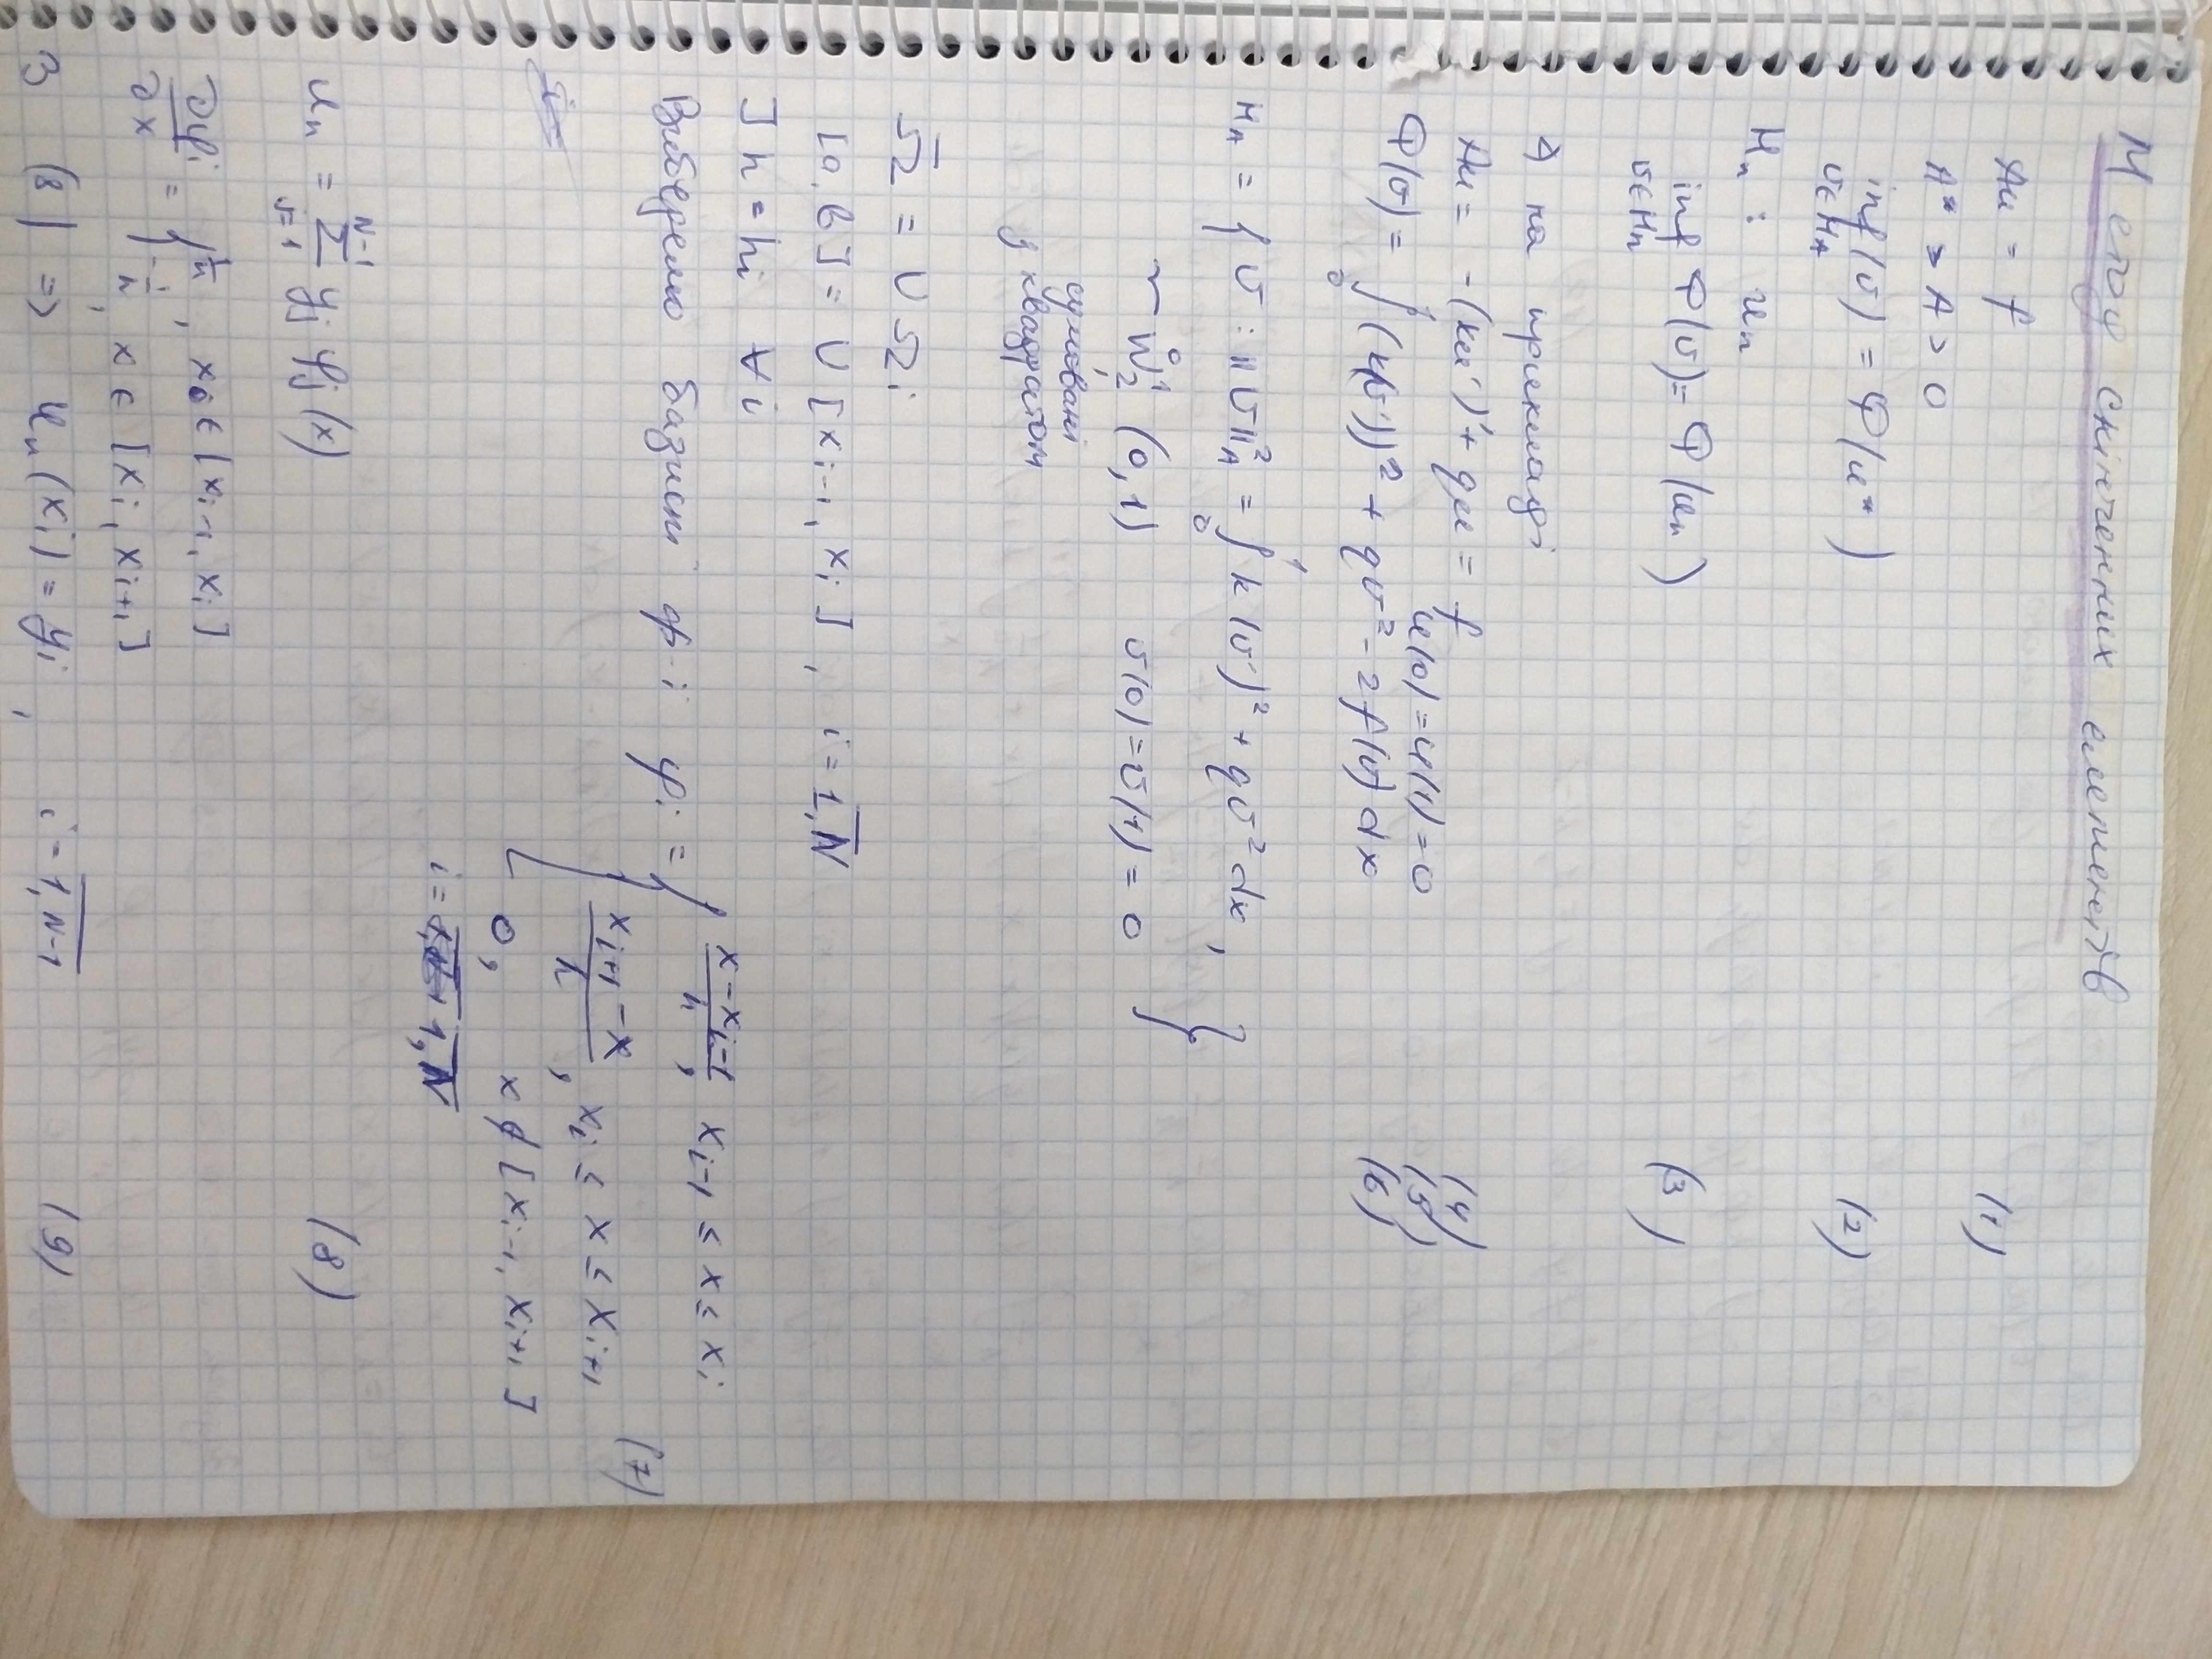 Методу скінченних елементів
Au = f (1)
A* = A > 0
inf (v) = Φ(u*) (2)
v∈H_A
H_n : u_n
inf Φ(v) = Φ(u_n) (3)
v∈H_n
А на прикладі
Au = -(ku')' + qu = f (4)
u(0) = u(1) = 0 (5)
Φ(v) = ∫₀¹ (k(v'))² + qv² - 2f(v) dx (6)
H_A = { v : ||v||²_A = ∫₀¹ k(v')² + qv² dx,
~ W̊₂¹ (0,1) v(0) = v(1) = 0 }
сумовані
з квадратом
Ω̄ = ∪ Ω_i
[a, b] = ∪ [x_{i-1}, x_i], i = 1,N
] h = h_i ∀ i
Виберемо базисні ф-ї φ_i = { (x - x_{i-1})/h, x_{i-1} ≤ x ≤ x_i
(x_{i+1} - x)/h, x_i ≤ x ≤ x_{i+1} (7)
0, x ∉ [x_{i-1}, x_{i+1}]
i = 1,N
u_n = Σ_{j=1}^{N-1} y_j φ_j(x) (8)
∂φ_i/∂x = { 1/h, x ∈ [x_{i-1}, x_i]
-1/h, x ∈ [x_i, x_{i+1}]
З (8) => u_n(x_i) = y_i, i = 1,N-1 (9)